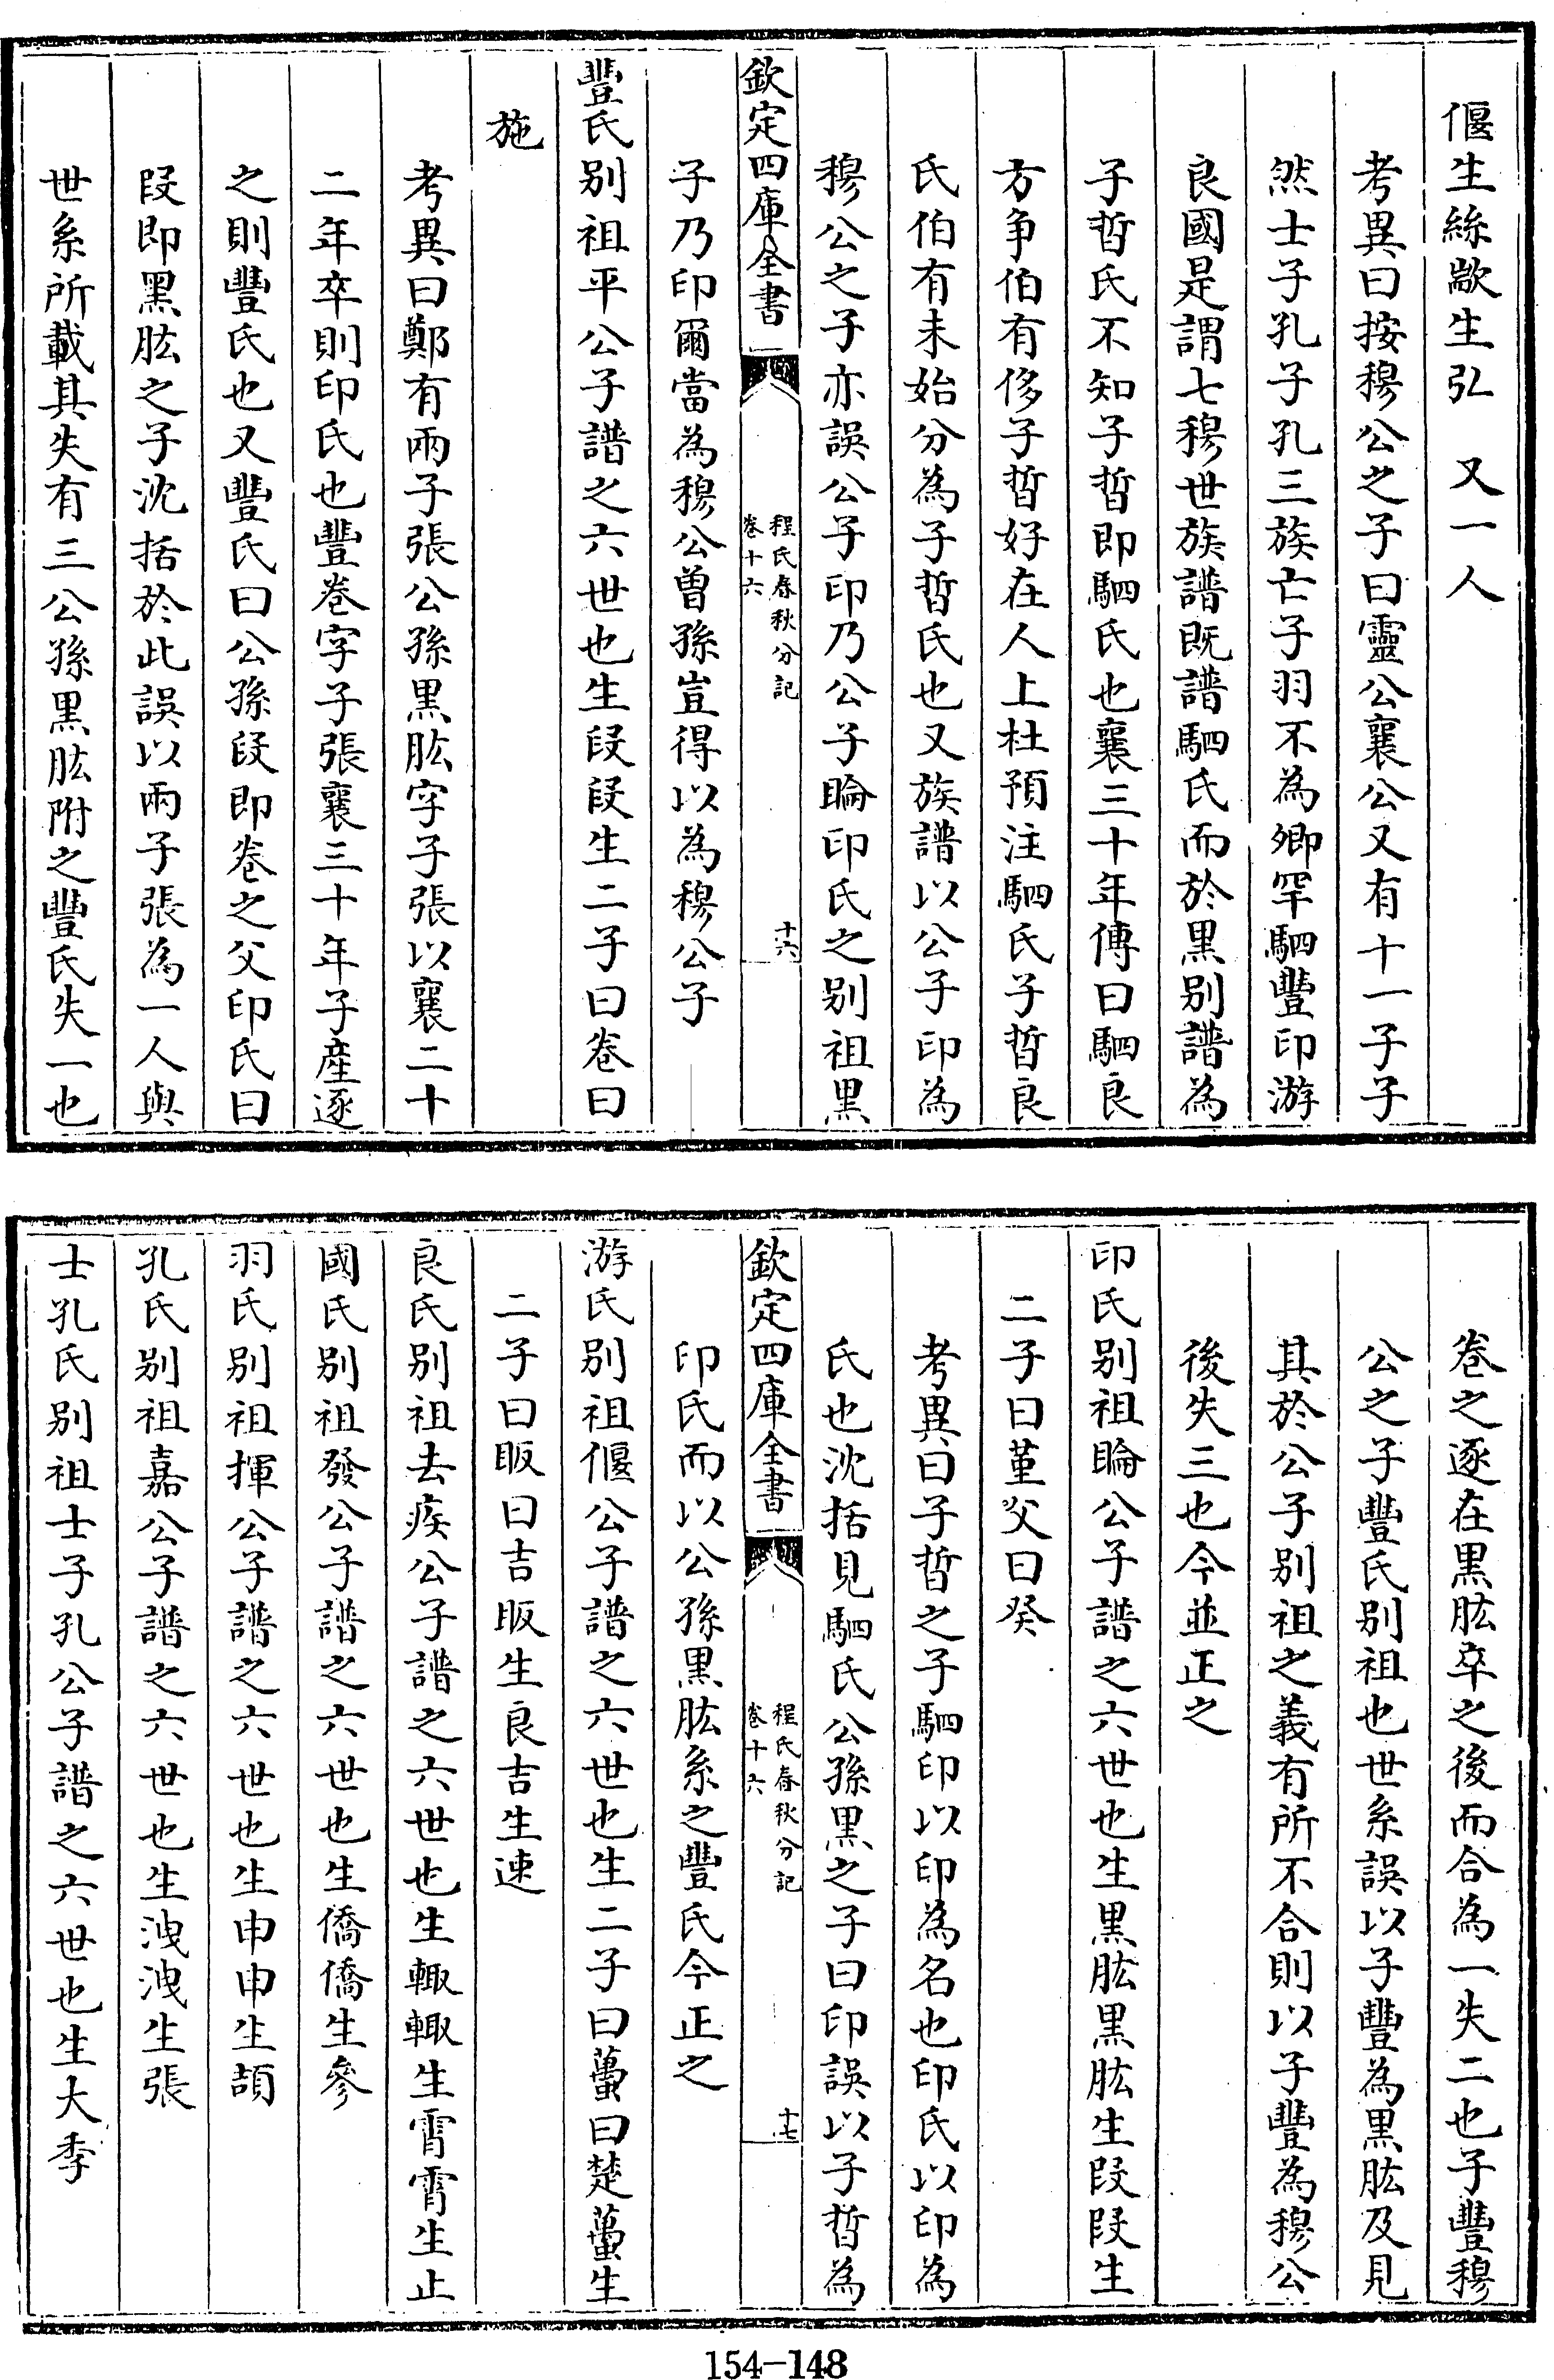 偃生絲歂生弘　又一人
考異曰按穆公之子曰靈公襄公又有十一子子
然士子孔子孔三族亡子羽不為卿罕駟豐印游
良國是謂七穆世族譜既譜駟氏而於黒别譜為
子晳氏不知子晳即駟氏也襄三十年傳曰駟良
方争伯有侈子晳好在人上杜預注駟氏子晳良
氏伯有未始分為子晳氏也又族譜以公子印為
穆公之子亦誤公子印乃公子睔印氏之别祖黒
欽定四庫全書
程氏春秋分記
卷十六
十六
子乃印爾當為穆公曾孫豈得以為穆公子
豐氏别祖平公子譜之六世也生段段生二子曰卷曰
施
考異曰鄭有兩子張公孫黒肱字子張以襄二十
二年卒則印氏也豐卷字子張襄三十年子産逐
之則豐氏也又豐氏曰公孫段即卷之父印氏曰
段即黒肱之子沈括於此誤以兩子張為一人與
世系所載其失有三公孫黒肱附之豐氏失一也
卷之逐在黒肱卒之後而合為一失二也子豐穆
公之子豐氏别祖也世系誤以子豐為黒肱及見
其於公子别祖之義有所不合則以子豐為穆公
後失三也今並正之
印氏别祖睔公子譜之六世也生黒肱黒肱生段段生
二子曰堇父曰癸
考異曰子晳之子駟印以印為名也印氏以印為
氏也沈括見駟氏公孫黒之子曰印誤以子晳為
欽定四庫全書
程氏春秋分記
卷十六
十七
印氏而以公孫黒肱系之豐氏今正之
游氏别祖偃公子譜之六世也生二子曰蠆曰楚蠆生
二子曰眅曰吉眅生良吉生速
良氏别祖去疾公子譜之六世也生輙輙生霄霄生止
國氏别祖發公子譜之六世也生僑僑生參
羽氏别祖揮公子譜之六世也生申申生頡
孔氏别祖嘉公子譜之六世也生洩洩生張
士孔氏别祖士子孔公子譜之六世也生大季
154-148